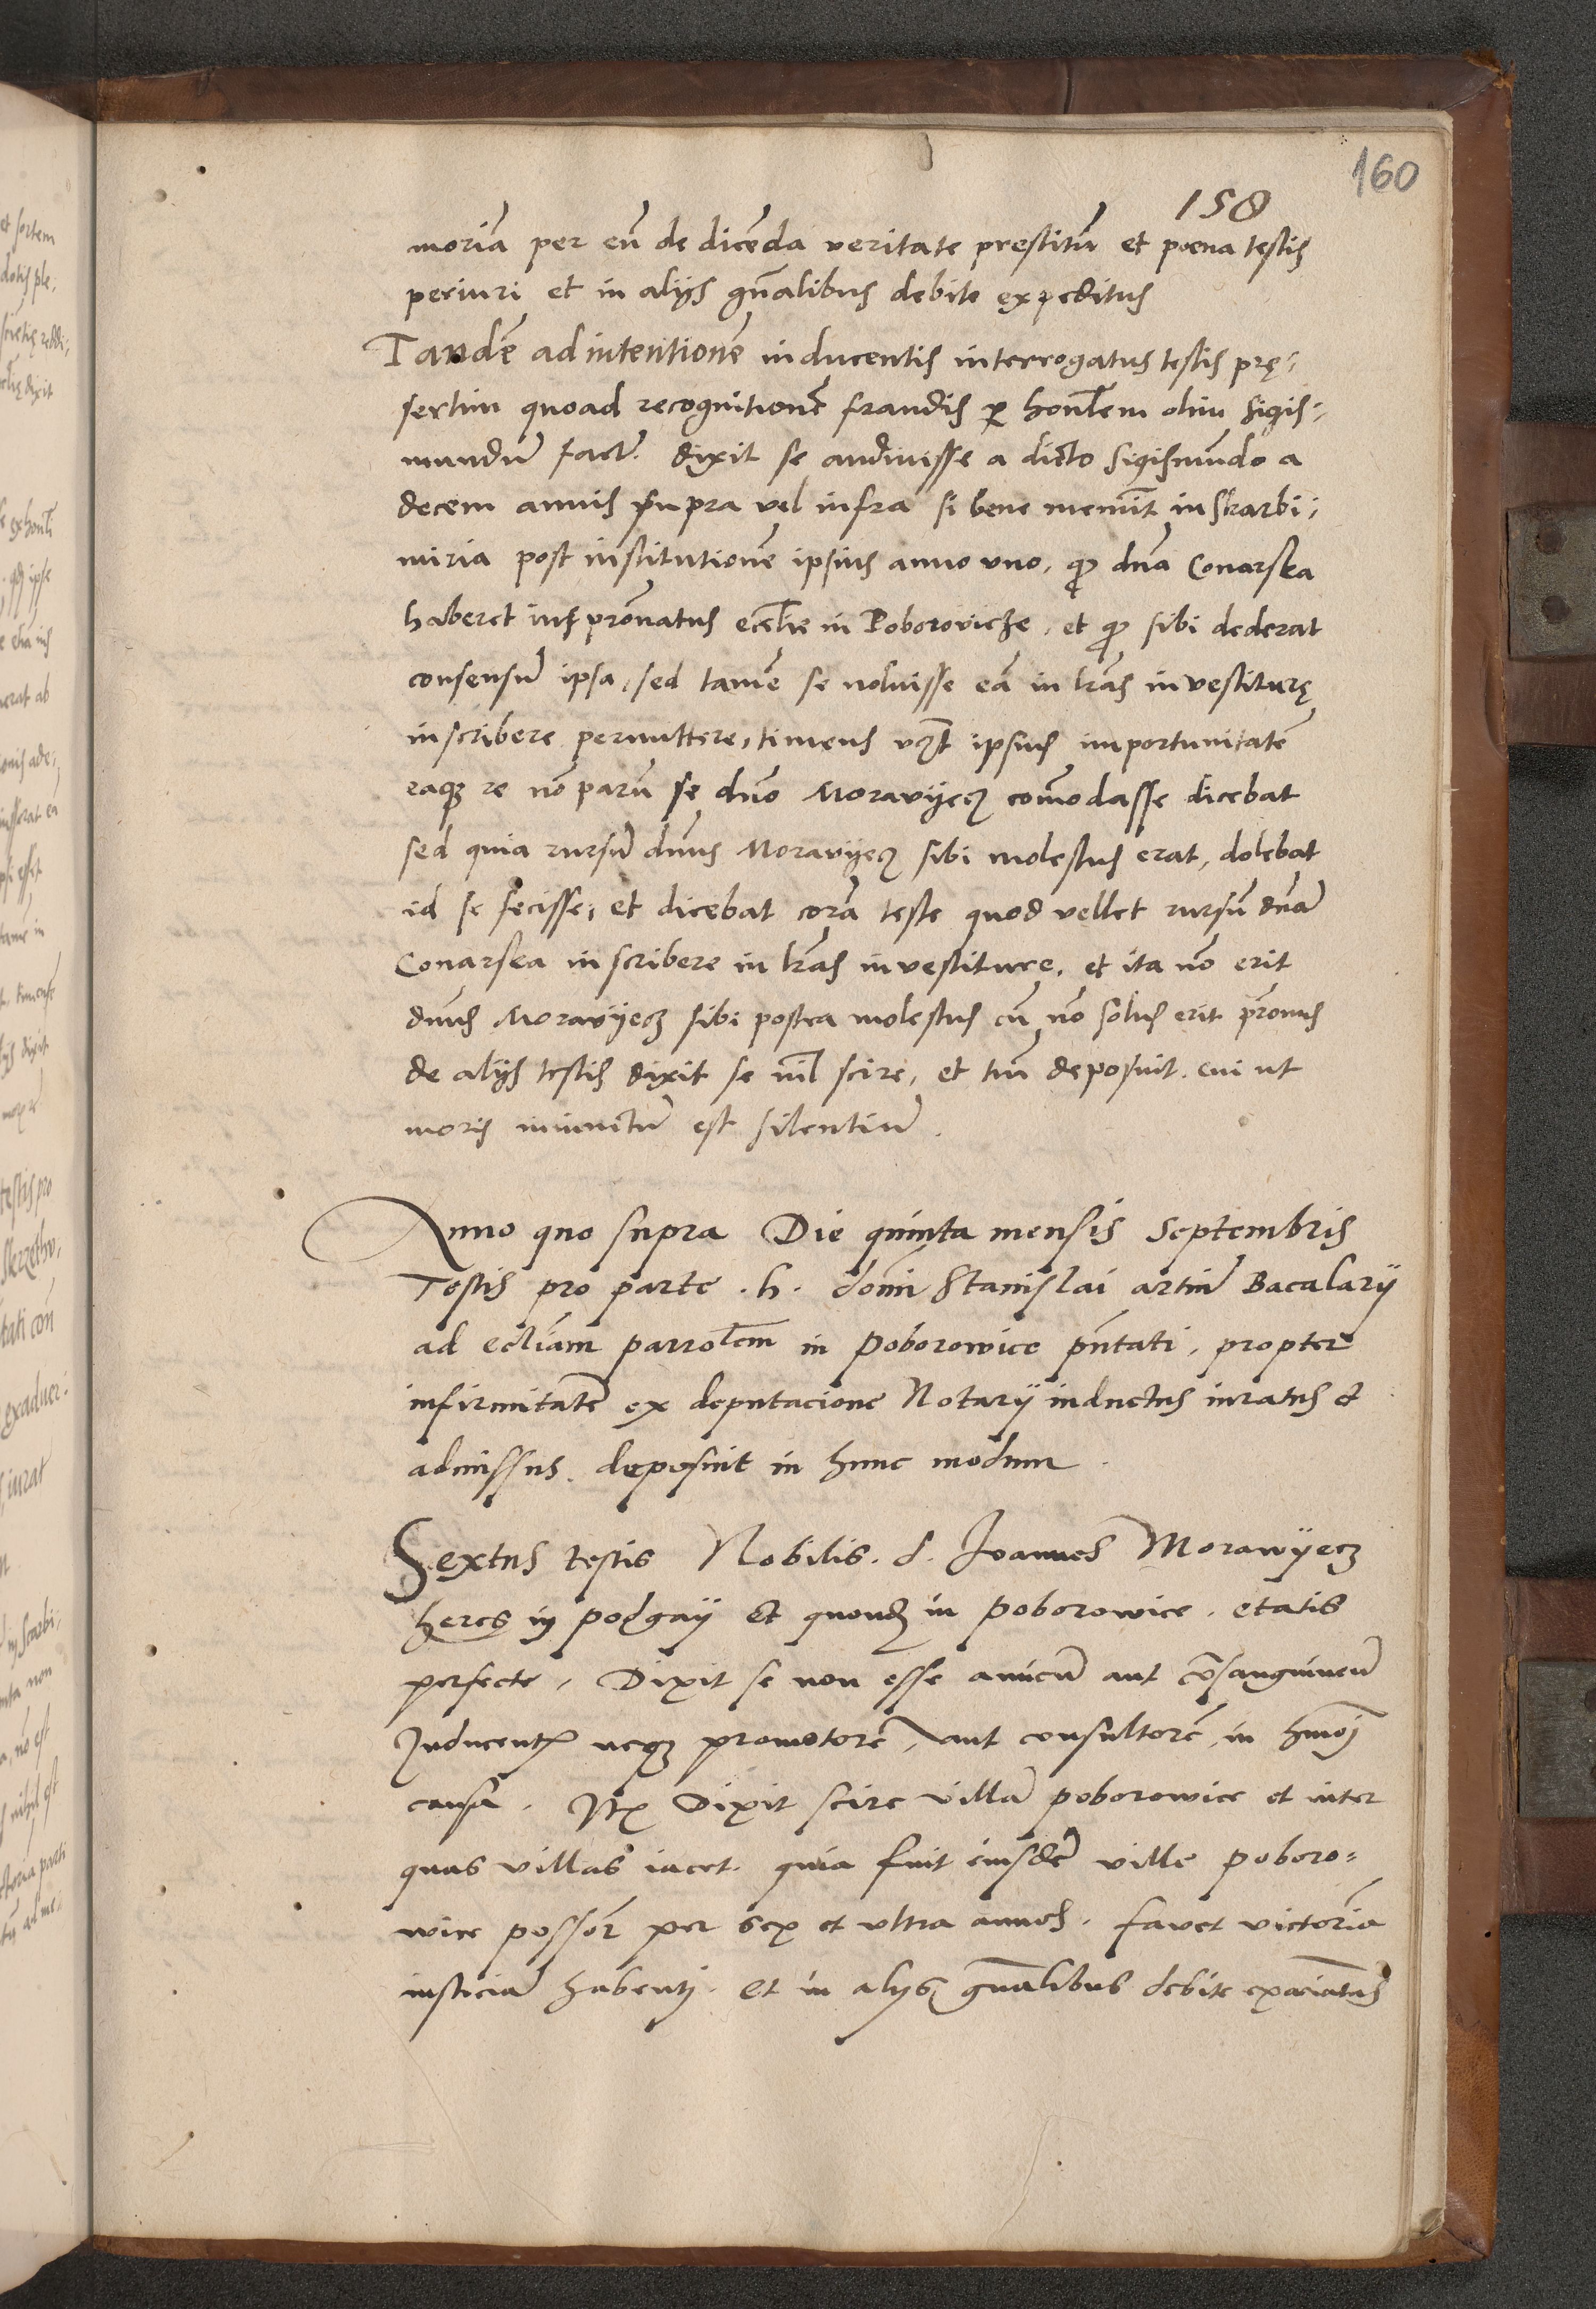 160
158
moriā per eū de dicēda veritate prestitū et poena testis
periuri et in alijs gn̄alibus debite expeditus
Tandē ad intentionē inducentis interrogatus testis prę-
sertim quoad recognitionē fraudis ꝑ honl̄em olim Sigis-
mundū fact̄. dixit se audiuisse a dicto Sigismūdo a
decem annis supra vel infra si bene memīt in Skarbi-
miria post institutionē ipsius anno uno, ꝙ dn̄a Conarska
haberet ius prōnatus eccl̄ie in Poborovicze, et ꝙ sibi dederat
consensū ipsa, sed tamē se noluisse eā in lr̄as investiturę
inscribere permittere, timens ipsius importunitatē
eaqꝫ re nō parū se dn̄o Moravyecz com̄odasse dicebat
sed quia rursū dn̄us Moravyecz sibi molestus erat, dolebat
id se fecisse, et dicebat corā teste quod vellet rursū dn̄ā
Conarska inscribere in lr̄as investiture, et ita nō erit
dn̄us Moravyecz sibi postea molestus cū nō solus erit pr̄onus
de alijs testis dixit se nīl scire, et tm̄ deposuit. cui ut
moris iniunctū est silentiū.
Anno quo supra Die quinta mensis Septembris
Testis pro parte .h. domī Stanislai artiū Bacalarij
ad eccl̄iam parrol̄em in Poborowice pn̄tati, propter
infirmitatē ex deputacione Notarij inductus iuratus et
admissus. deposuit in hunc modum.
Sextus testis Nobilis. d. Joannes Morawyecz
heres in podgaij Et quond̄ in poborowice. etatis
perfecte, Dixit se non esse amicū aut cōsanguineū
Inducentꝭ neqꝫ promotorē, aut consultorē, in hmōj
causa. Itꝫ Dixit scire villā poborowice et inter
quas villas iacet. quia fuit eiusdē ville poboro-
wice possōr per sex et vltra annos. favet victoriā
iusticiā habentj. Et in alijs gn̄alibus debite exaīatus